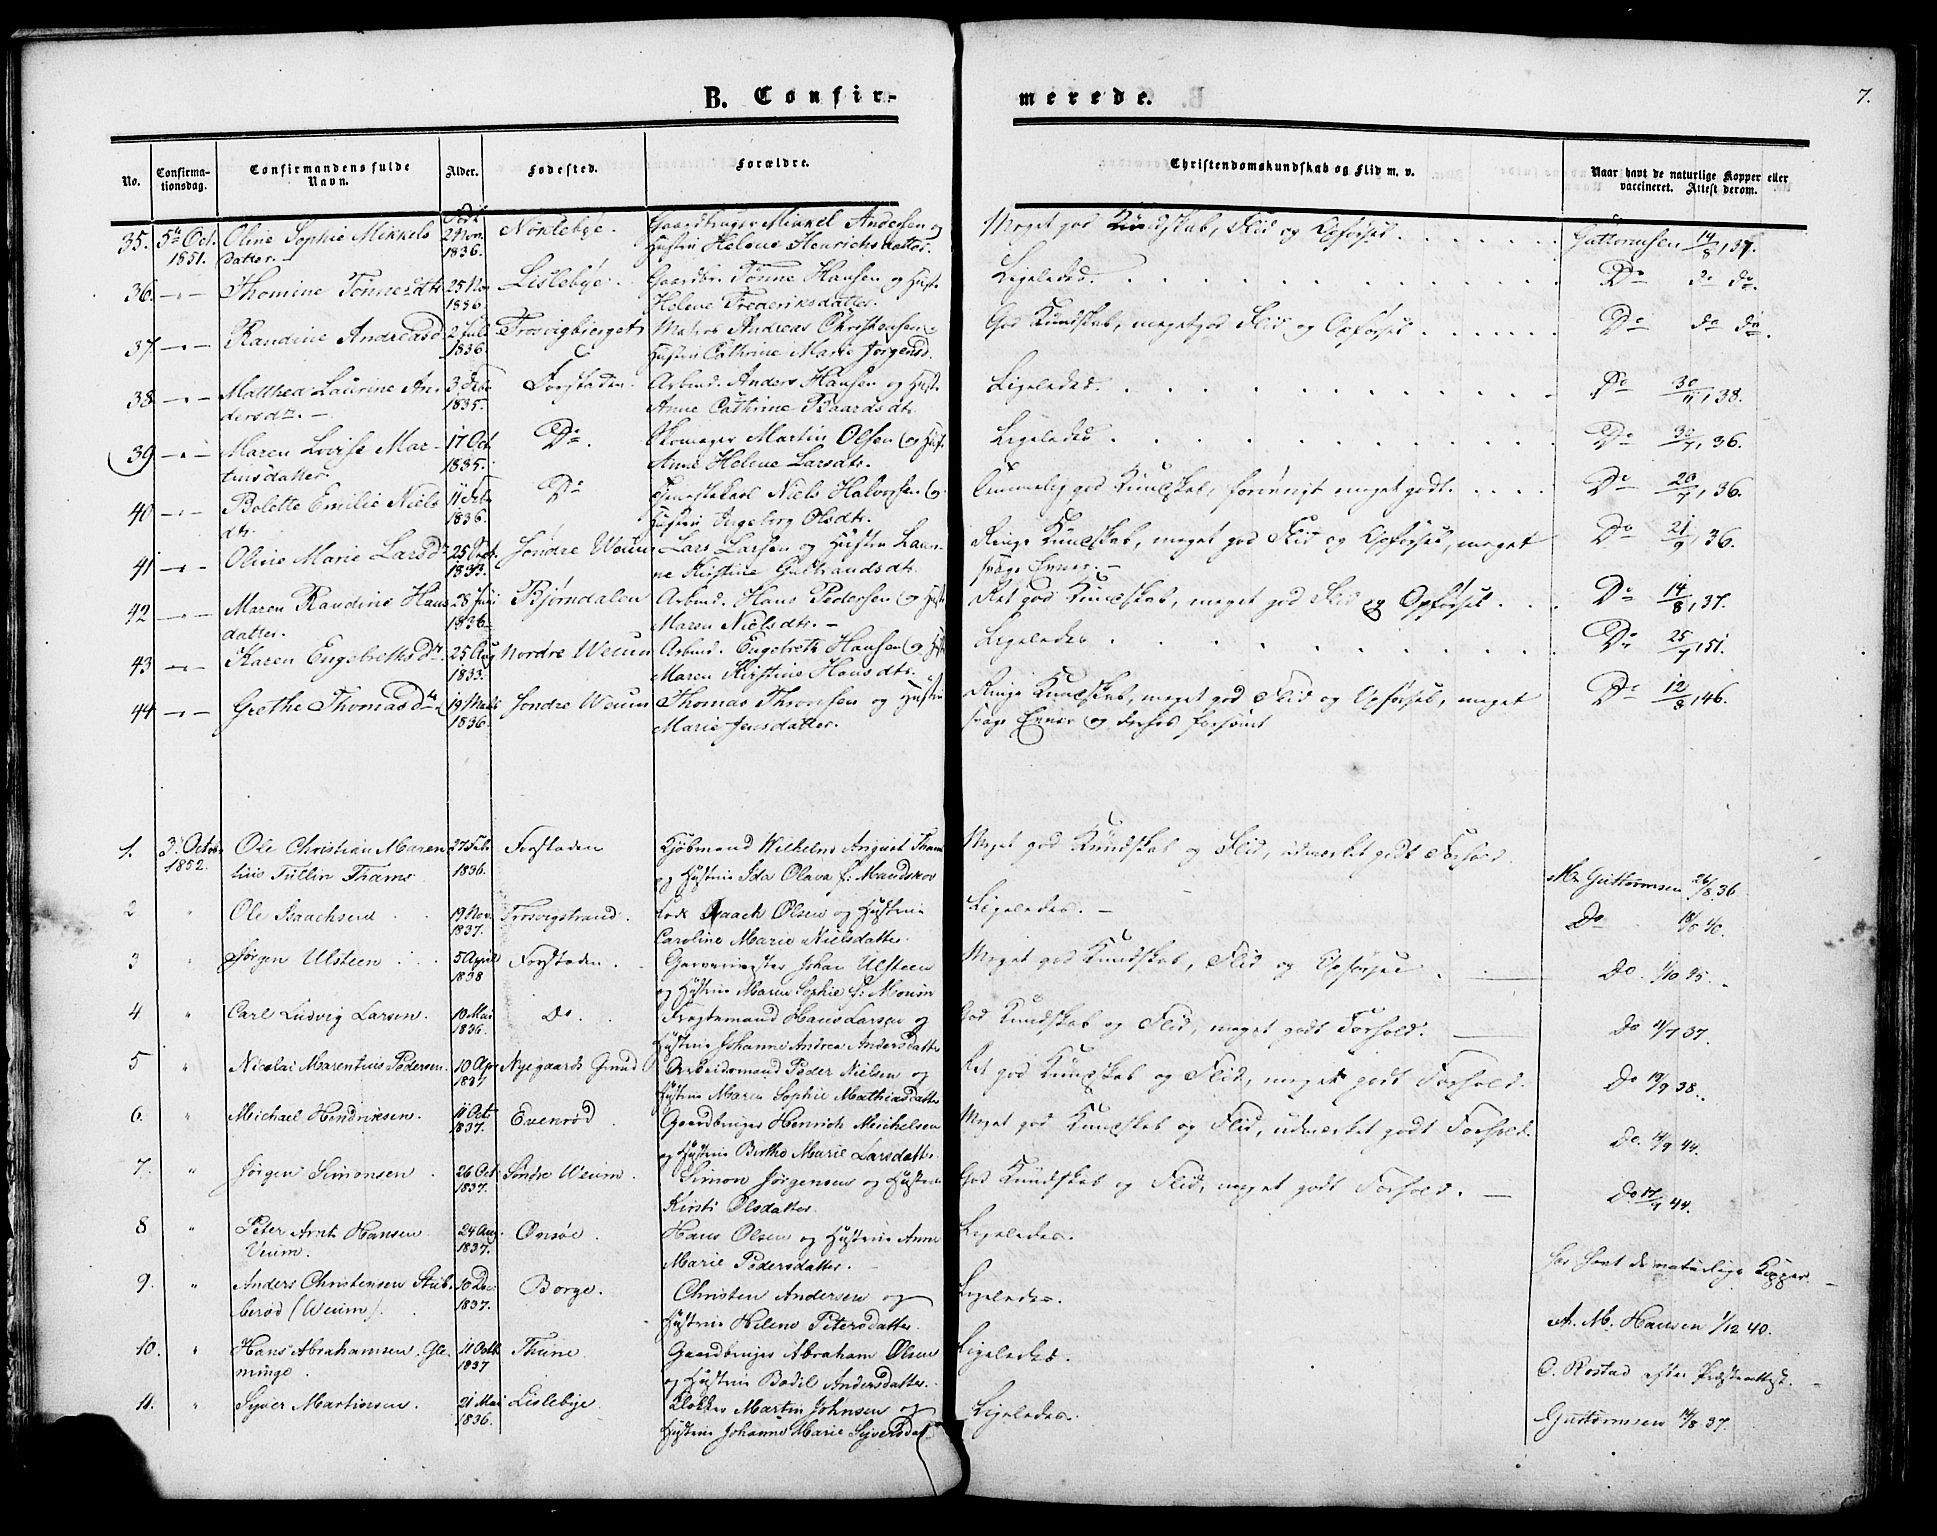 B. Confirmerede.
7.
No. Confirmationsdag. Confirmandens fulde Navn. Alder. Fødested. Forældre. Christendomskundskab og Flid m. v. Naar havt de naturlige Kopper eller vaccineret. Attest derom.
35. 5te Oct. 1851. Oline Sophie Mikkels datter. Født 2 Nov. 1836. Nøklebye. Gaardbruger Mikkel Andersen og Hustru Helene Henrichsdatter. Meget god Kundskab, Flid og Opførsel. Guttormsen 14/8, 37.
36. Thomine Tønnesdtr 25 Nov 1836 Lislebye. Gaardbr. Tønne Hansen og Hust. Helene Frederiksdatter. Ligeledes. Do do do.
37. Randine Andreasd 2 Juli 1836. Trosvigbierget Matros Andreas Christensen og Hustru Cathrine Marie Jørgensd. God Kundskab, meget god Flid og Opførsel Do do do.
38. Matthea Laurine Andersdtr. 3 Feb 1835. Forstaden. Arbmd. Anders Hansen og Hust. Anne Cathrine Baardsdtr. Ligeledes. Do 30/11, 38.
39. Maren Lovise Martinsdatter. 17 Oct 1835. Do. Skomager Martin Olsen og Hust. Anne Helene Larsdtr. Ligeledes Do 30/7, 36.
40. Bolette Emilie Nielsdtr. 11 Feb 1836. Do Tjenestekarl Niels Halvorsen og Hustru Ingeborg Olsdtr. Temmelig god Kundskab, forøvrigt meget godt. Do 20/7, 36.
41. Oline Marie Larsdtr 25 1833. Søndre Weum Lars Larsen og Hustru Kirstine Gulbrandsdtr. Ringe Kundskab, meget god Flid og Opførsel, meget svage Evner. Do 21/9, 36.
42. Maren Randine Hansdatter. 28 Juli 1836 Bjørndalen Arbmd. Hans Pedersen og Hust. Maren Nielsdtr. Ret god Kundskab, meget god Flid og Opførsel Do 14/8, 37.
43. Karen Engebretsdtr 25 Aug 1833. Nordre Weum Arbmd. Engebret Hansen og Hust. Maren Kirstine Hansdtr. Ligeledes Do 25/7, 51.
44. Grethe Thomasdtr. 19 1836. Søndre Weum Thomas Thronsen og Hustru Marie Jensdatter. Ringe Kundskab, meget god Flid og Opførsel, meget svage Evner og Forhos forsømt Do 12/8, 46.
1. 3. Octobr 1852. Ole Christian Marentius Tullin Thams 27 Feb 1836. Forstaden Kjøbmand Wilhelm August Thams og Hustru Ida Olava f: Mandskov Meget god Kundskab og Flid, udmærket godt Forhold. Mr Guttormsen 26/8 36
2 " Ole Isaachsen 19 Nov. 1837. Trosvigstrand. Lods Isaach Olsen og Hustru Caroline Marie Nielsdatter. Ligeledes. Do 18/8 40.
3 " Jørgen Ulsteen 5 April 1838 Forstaden. Garvermester Johan Ulsteen og Hustru Maren Sophie f: Monin Meget god Kundskab, Flid og Opførsel Do. 1/10 35.
4 " Carl Ludvig Larsen. 10 Mai 1836. Do. Fragtemand Hans Larsen og Hustru Johanne Andrea Andersdatter God Kundskab og Flid, meget godt Forhold. Do 11/7 37.
5 " Nicolai Marentius Pedersen. 10 Apr 1837 Nygaards Grund Arbeidsmand Peder Nielsen og Hustru Maren Sophie Mathiasdatter Ret god Kundskab og Flid, meget godt Forhold. Do 19/9 38.
6. " Meichael Hendricsen. 11 Oct 1837. Evenrød Gaardbruger Henrich Meichelsen og Hustru Birthe Marie Larsdatter. Meget god Kundskab og Flid, udmærket godt Forhold. Do. 14/9 44.
7. " Jørgen Simonsen 26 Oct 1837. Søndre Weum. Simon Jørgensen og Hustru Kirsti Olsdatter. God Kundskab og Flid, meget godt Forhold. Do 17/9 44.
8 " Peter Arnt Hansen Veum. 24 Aug. 1837. Onsøe. Hans Olsen og Hustru Anne Marie Pedersdatter. Ligeledes. har havt de naturlige Kopper.
9. " Anders Christensen Stubberød (Weum). 10 Dec 1837. Borge. Christen Andersen og Hustru Helene Petersdatter. Ligeledes. A. M. Hansen 1/12 40.
10. " Hans Abrahamsen Gleminge. 11 Octb 1837 Thune. Gaardbruger Abraham Olsen og Hustru Bodil Andersdatter. Ligeledes. O. Rostad efter Præsteattest.
11. " Syver Martinsen. 21 Mai 1836. Lislebye Klokker Martin Johnsen og Hustru Johanne Marie Syversdat. Ligeledes. Guttormsen 14/8 37.